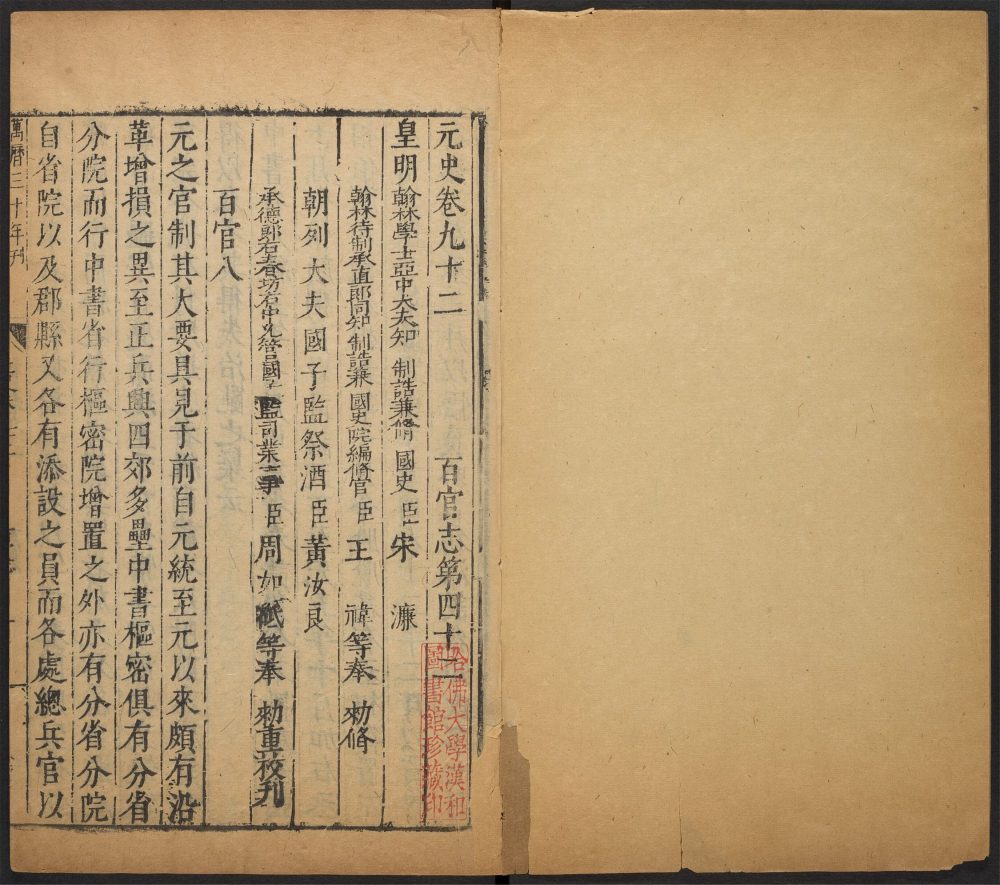 元史卷九十二 百官志第四十二
皇明翰林學士亞中大夫知 制誥兼脩 國史 臣 宋 濂
翰林待制承直郎同知 制誥兼 國史院編脩官 臣 王 禕等奉 勑脩
朝列大夫國子監祭酒 臣 黃汝良
承德郎右春坊右中允管國子監司業事 臣 周如砥等奉 勑重校刊
百官八
元之官制其大要具見于前自元統至元以來頗有沿
革增損之異至正兵興四郊多壘中書樞密俱有分省
分院而行中書省行樞密院增置之外亦有分省分院
自省院以及郡縣又各有添設之員而各處總兵官以
萬曆三十年刊
哈佛大學漢和
圖書館珍藏印